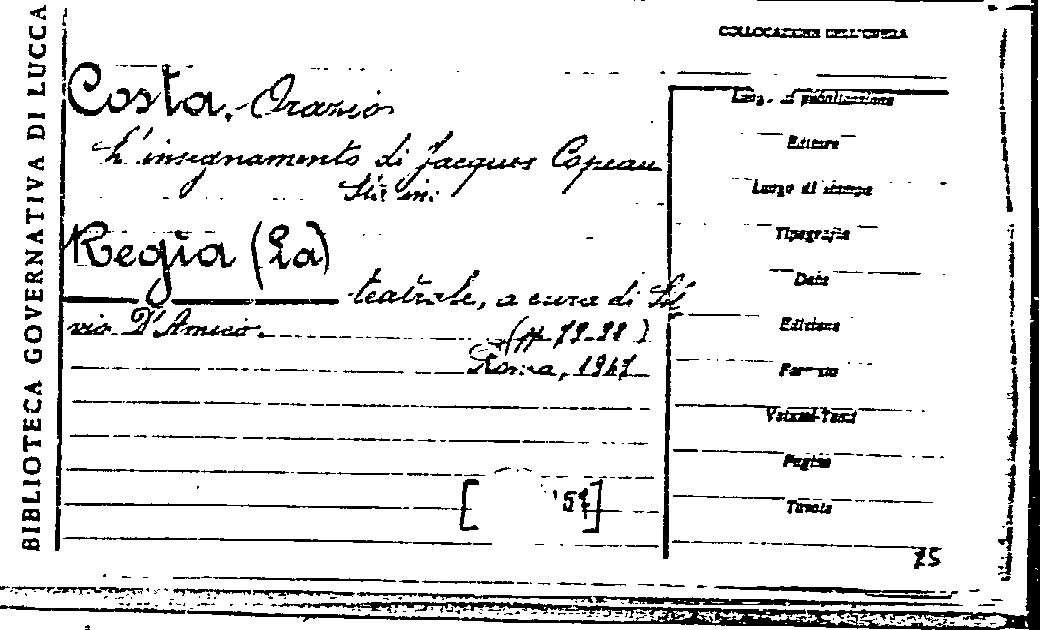 BIBLIOTECA GOVERNATIVA DI LUCCA
COLLOCAZIONE DELL'OPERA
Costa, Orazio
L'insegnamento di Jacques Copeau
Sta in:
Regia (La)
teatrale, a cura di Sil
vio D'Amico.
Roma, 1947
[ '57]
Luogo di pubblicazione
Editore
Luogo di stampa
Tipografia
Data
Edizione
Formato
Volumi-Tomi
Pagine
Tavole
75